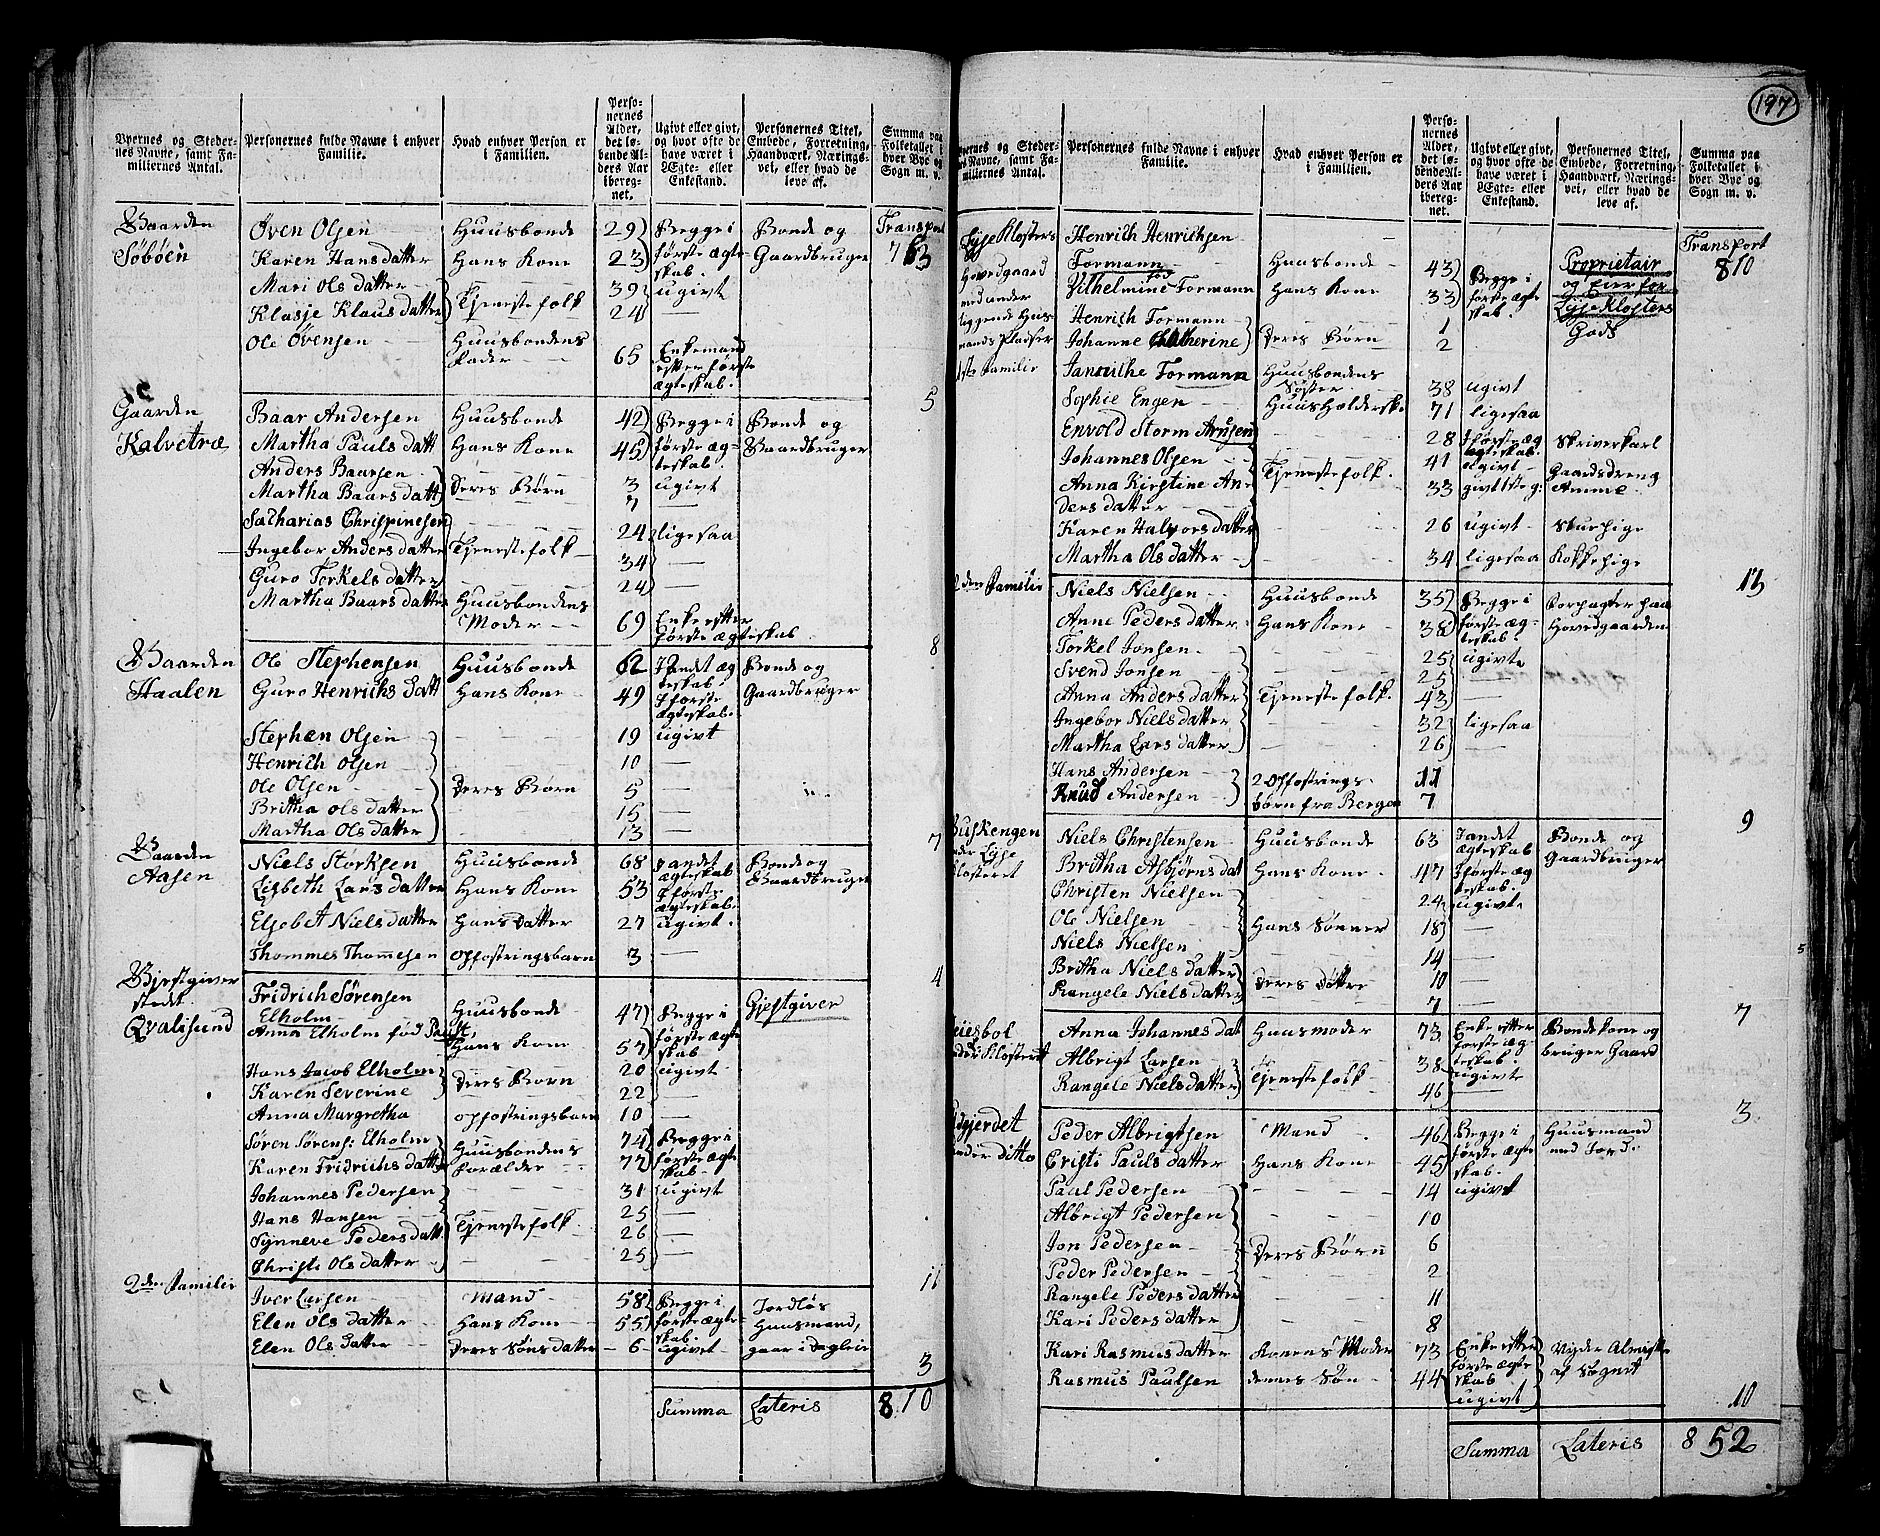 197
Byernes og Steder-
nes Navne, samt Fa-
miliernes Antal.
Personernes fulde Navne i enhver
Familie.
Hvad enhver Person er
i Familien.
Perso-
nernes
Alder,
det lø-
bende Al-
ders Aar
iberegnet.
Ugivt eller givt,
og hvor ofte de
have været i
Ægte- eller
Enkestand.
Personernes Titel,
Embede, Forretning,
Haandværk, Nærings-
vei, eller hvad de
leve af.
Summa paa
Folketallet i
hver Bye og
Sogn m. v.
Gaarden Øven Olsen Huusbonde 29 Begge i Bonde og Transport
Söböen Karen Hans datter Hans Kone 23 første ægte Gaardbruger 763
skab.
Mari Ols datter Tjenestefolk 39 ugivt
Klasje Klaus datter 24 —
Ole Øvensen Huusbondens
Fader 65 Enkemand
efter første
ægteskab. 5
Gaarden Baar Andersen Huusbonde 42 Begge i Bonde og
Kalvetræ Martha Pauls datt Hans Kone 45 første æg- Gaardbruger
teskab.
Anders Baarsen Deres Børn 3 ugivt
Martha Baars datt 7 —
Sacharias Chrispinesen 24 ligesaa
Ingebor Anders datter Tjenestefolk 34 —
Guro Torkels datter 24 —
Martha Baars datter Huusbondens
Moder 69 Enke efter
første ægteskab 8
Gaarden Ole Stephensen Huusbonde 62 I andet æg Bonde og
Haalen teskab Gaardbruger
Guro Henrichs Datt Hans Kone 49 I første
ægteskab.
Stephen Olsen 19 ugivt
Henrich Olsen 10 —
Ole Olsen Deres Børn 5 —
Britha Ols datter 15 —
Martha Ols datter 13 — 7
Gaarden Niels Storksen Huusbonde 68 I andet Bonde og
Aasen ægteskab Gaardbruger
Lisbeth Lars datter Hans Kone 53 I første
ægteskab.
Elsebet Niels datter Hans Datter 27 ugivt.
Thommes Thommesen opfostringsbarn 3 — 4
Gjestgiver Fridrich Sørensen
stedet Elholm Huusbonde 47 Begge i Gjestgiver
Qvalisund Anna Elholm fød Hans Kone 57 første ægte
skab
Hans Jacob Elholm Deres Børn 20 ugivt
Karen Severine 22 —
Anna Margretha opfostringsbarn 10 —
Søren Sørens: Elholm Huusbondens 74 Begge i
Karen Fridrichs datter Forælder 77 første ægte
skab
Johannes Pedersen 31 ugivt
Hans Hansen Tjenestefolk 25 —
Synneve Peders datt 26 —
Christi Ols datter 25 — 11
2den Familie Iver Larsen Mand 58 Begge i Jordløs
Elen Ols datter Hans Kone 55 første ægte Huusmand,
skab.
Elen Ols Datter Deres Søns datter 6 ugivt gaar i Dagleie 3
Summa Lateris 810
Byernes og Steder-
nes Navne, samt Fa-
miliernes Antal.
Personernes fulde Navne i enhver
Familie.
Hvad enhver Person er
i Familien.
Perso-
nernes
Alder,
det lø-
bende Al-
ders Aar
iberegnet.
Ugivt eller givt,
og hvor ofte de
have været i
Ægte- eller
Enkestand.
Personernes Titel,
Embede, Forretning,
Haandværk, Nærings-
vei, eller hvad de
leve af.
Summa paa
Folketallet i
hver Bye og
Sogn m. v.
Lyse Klosters Henrich Henrichsen Transport
Hovedgaard Formann Huusbonde 43 Begge i Proprietair 810
med under Vilhelmine fød Formann Hans Kone 33 første ægte og Eier for
liggende Huus- skab. Lyse Klosters
mands Pladser Henrich Formann Deres Børn 1 Gods
Johanne Catherine 2
1ste Familie Formann Huusbondens
Søster 38 ugivt
Sophie Engen Huusholderske 71 ligesaa
Envold Storm 28 I første æg Skriverkarl
teskab.
Johannes Olsen Tjenestefolk 41 ugivt Gaardsdreng
Anna Kirstine An 33 Amme
ders datter
Karen Halvors datter 26 ugivt
Martha Ols datter 34 ligesaa Kokkepige 13
den Familie Niels Nielsen Huusbonde 35 Begge i Forpagter paa
Anne Peders datter Hans Kone 38 første æg- Hovedgaarden
teskab.
Torkel Jonsen 25 ugivte
Svend Jonsen 25 —
Anna Anders datter Tjenestefolk 43 —
Ingebor Niels datter 32 ligesaa
Martha Lars datter 26 —
Hans Andersen 2 opfostrings 11
Knud Andersen børn fra Bergen 7 9
Buskengen Niels Christensen Huusbonde 63 I andet Bonde og
under Lyse ægteskab Gaardbruger
Klosteret Britha Asbjørns dat Hans Kone 47 I første æg
teskab.
Christen Nielsen 24 ugivte
Ole Nielsen Hans Sønner 18 —
Niels Nielsen 14 —
Britha Niels Datter Deres Døttre 10 —
Rangele Niels datter 7 — 7
Anna Johannes dat Huusmoder 73 Enke efter Bondekone og
under Klosteret første æg- bruger Gaard
teskab
Albrigt Larsen Tjenestefolk 38 ugivte
Rangele Niels datter 46 — 3.
Peder Albrigtsen Mand 46 Begge i Huusmand
under ditto Cristi Pauls datter Hans Kone 45 første ægte med Jord.
skab.
Paul Pedersen 14 ugivt
Albrigt Pedersen 10
Jon Pedersen Deres Børn 6
Peder Pedersen 2
Rangele Peders datter 11
Kari Peders datter 8
Kari Rasmus datter Konens Moder 73 Enke efter Nyder Almisse
første ægte af Sognet
skab
Rasmus Paulsen dennes Søn 44 ugivt 10
Summa Lateris 852